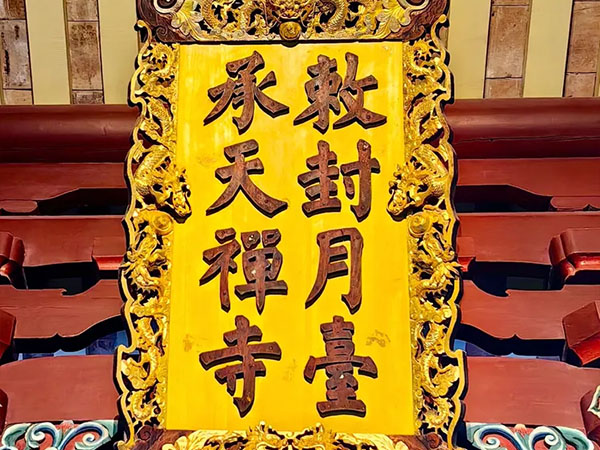 敕封月臺
承天禪寺